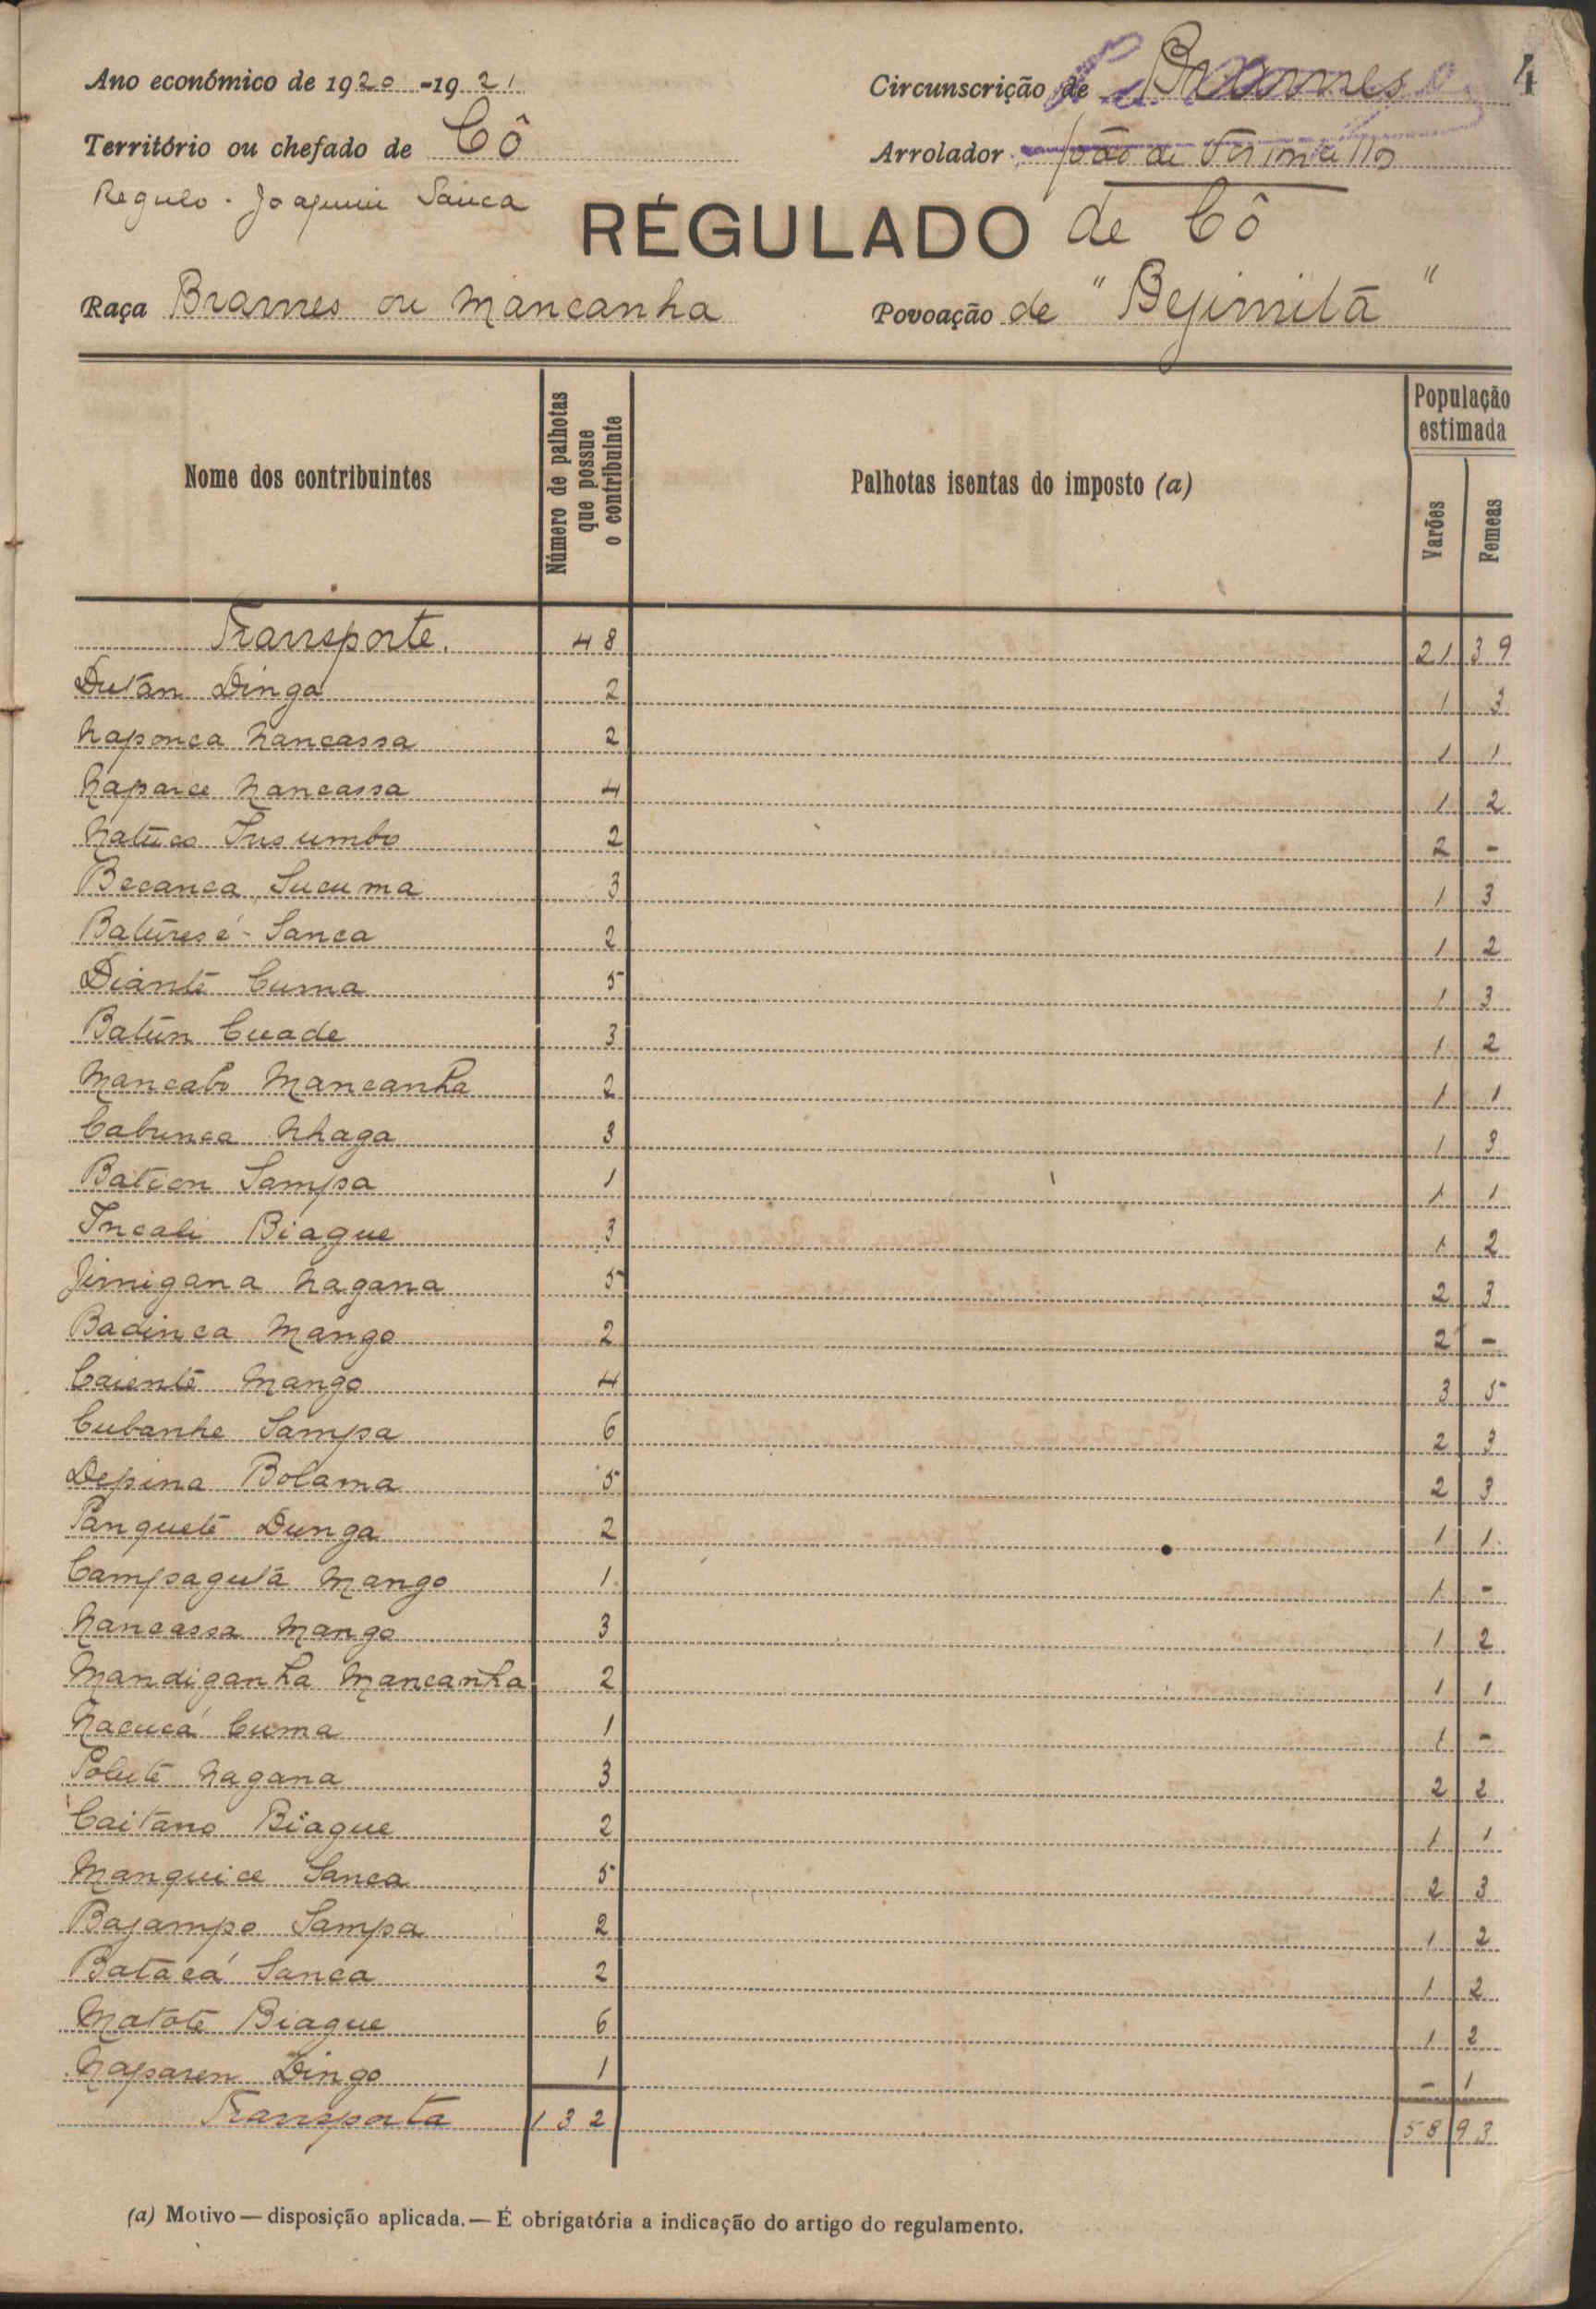 Ano económico de 1920-1921
Circunscrição de Brames
4
Território ou chefado de Cô
Arrolador João de
Regulo - Joaquim Sanca
RÉGULADO de Cô
Raça Brames ou Mancanha
Povoação de "Bejimitã"
Nome dos contribuintes
Número de palhotas que possue o contribuinte
Palhotas isentas do imposto (a)
População estimada
Varões
Femeas
Transporte. 48 21 39
Dután Dinga 2 1 3
Naponca Nancassa 2 1 1
Naparce Nancassa 4 1 2
Natüco Insumbo 2 2 -
Becanca Sucuma 3 1 3
Batüresé - Sanca 2 1 2
Diantê Cuma 5 1 3
Batün Cuade 3 1 2
Mancabo Mancanha 2 1 1
Cabunca Nhaga 3 1 3
Batican Sampa 1 1 1
Incali Biague 3 1 2
Jimigana Nagana 5 2 3
Badinca Mango 2 2 -
Caientê Mango 4 3 5
Cubanhe Sampa 6 2 3
Depina Bolama 5 2 3
Panquetê Dunga 2 1 1
Campagutá Mango 1 1 -
Nancassa Mango 3 1 2
Mandiganha Mancanha 2 1 1
Nacucá Cuma 1 1 -
Polutê Nagana 3 2 2
Caitano Biague 2 1 1
Manquice Sanca 5 2 3
Bajampo Sampa 2 1 2
Batacá Sanca 2 1 2
Matotê Biague 6 1 2
Naparen Dingo 1 - 1
Transporta 132 58 93
(a) Motivo — disposição aplicada. — É obrigatória a indicação do artigo do regulamento.